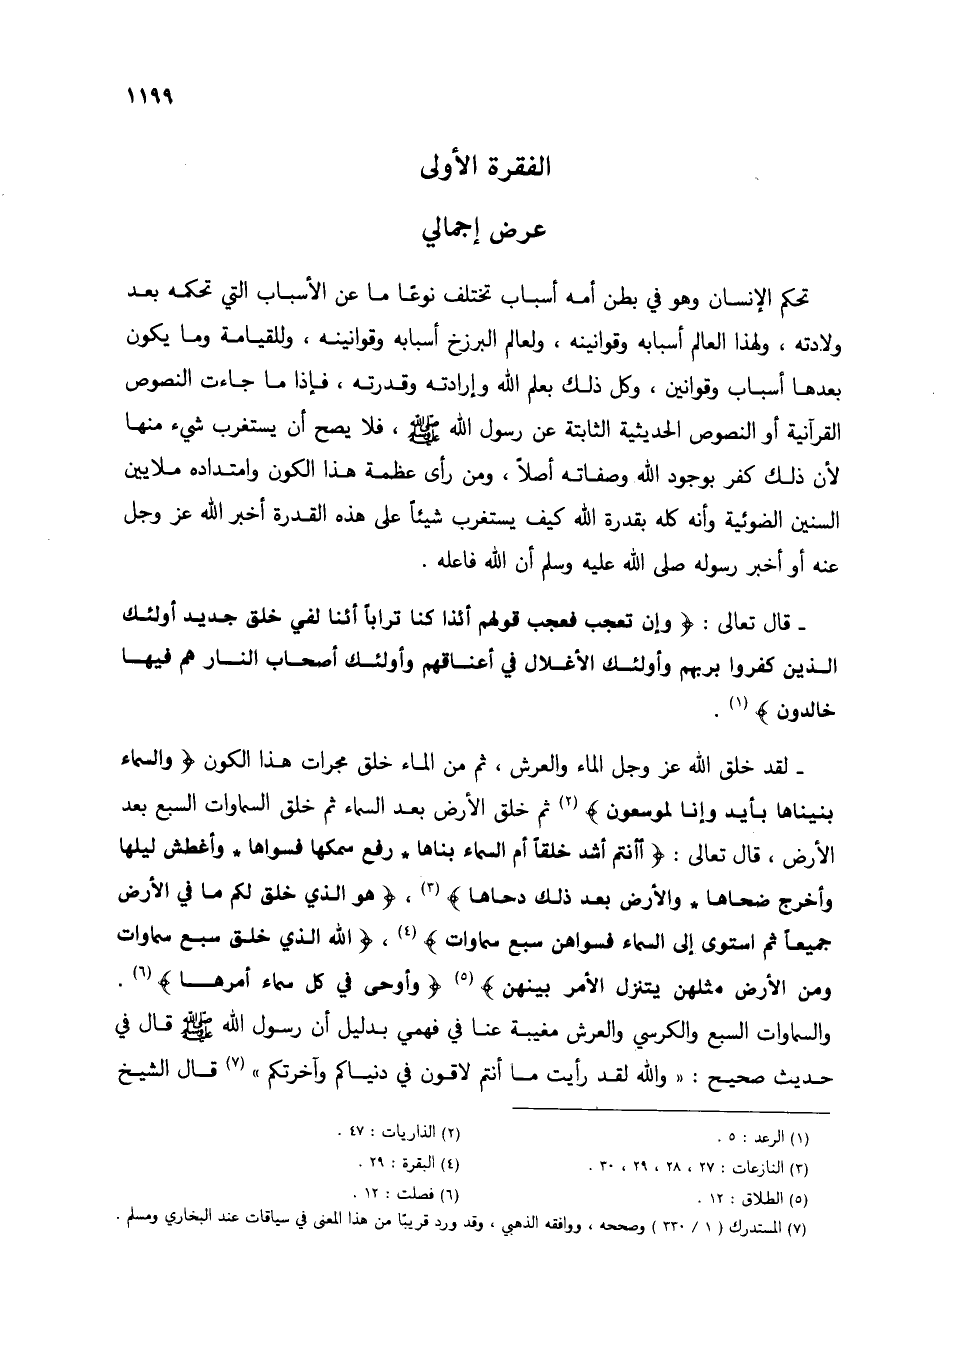 ١١٩٩
الفقرة الأولى
عرض إجمالي
تحكم الإنسان وهو في بطن أمه أسباب تختلف نوعًا ما عن الأسباب التي تحكمه بعد
ولادته ، ولهذا العالم أسبابه وقوانينه ، ولعالم البرزخ أسبابه وقوانينه ، وللقيامة وما يكون
بعدها أسباب وقوانين ، وكل ذلك بعلم الله وإرادته وقدرته ، فإذا ما جاءت النصوص
القرآنية أو النصوص الحديثية الثابتة عن رسول الله ﷺ ، فلا يصح أن يستغرب شيء منها
لأن ذلك كفر بوجود الله وصفاته أصلاً ، ومن رأى عظمة هذا الكون وامتداده ملايين
السنين الضوئية وأنه كله بقدرة الله كيف يستغرب شيئاً على هذه القدرة أخبر الله عز وجل
عنه أو أخبر رسوله صلى الله عليه وسلم أن الله فاعله .
ـ قال تعالى : ﴿ وإن تعجب فعجب قولهم أئذا كنا تراباً أئنا لفي خلق جديد أولئك
الذين كفروا بربهم وأولئك الأغلال في أعناقهم وأولئك أصحاب النار هم فيها
خالدون ﴾ (١) .
ـ لقد خلق الله عز وجل الماء والعرش ، ثم من الماء خلق مجرات هذا الكون ﴿ والسماء
بنيناها بأيد وإنا لموسعون ﴾ (٢) ثم خلق الأرض بعد السماء ثم خلق السماوات السبع بعد
الأرض ، قال تعالى : ﴿ أأنتم أشد خلقاً أم السماء بناها * رفع سمكها فسواها * وأغطش ليلها
وأخرج ضحاها * والأرض بعد ذلك دحاها ﴾ (٣) ، ﴿ هو الذي خلق لكم ما في الأرض
جميعاً ثم استوى إلى السماء فسواهن سبع سماوات ﴾ (٤) ، ﴿ الله الذي خلق سبع سماوات
ومن الأرض مثلهن يتنزل الأمر بينهن ﴾ (٥) ﴿ وأوحى في كل سماء أمرها ﴾ (٦) .
والسماوات السبع والكرسي والعرش مغيبة عنا في فهمي بدليل أن رسول الله ﷺ قال في
حديث صحيح : « والله لقد رأيت ما أنتم لاقون في دنياكم وآخرتكم » (٧) قال الشيخ
(١) الرعد : ٥ .
(٢) الذاريات : ٤٧ .
(٣) النازعات : ٢٧ ، ٢٨ ، ٢٩ ، ٣٠ .
(٤) البقرة : ٢٩ .
(٥) الطلاق : ١٢ .
(٦) فصلت : ١٢ .
(٧) المستدرك ( ١ / ٣٣٠ ) وصححه ، ووافقه الذهبي ، وقد ورد قريبًا من هذا المعنى في سياقات عند البخاري ومسلم .